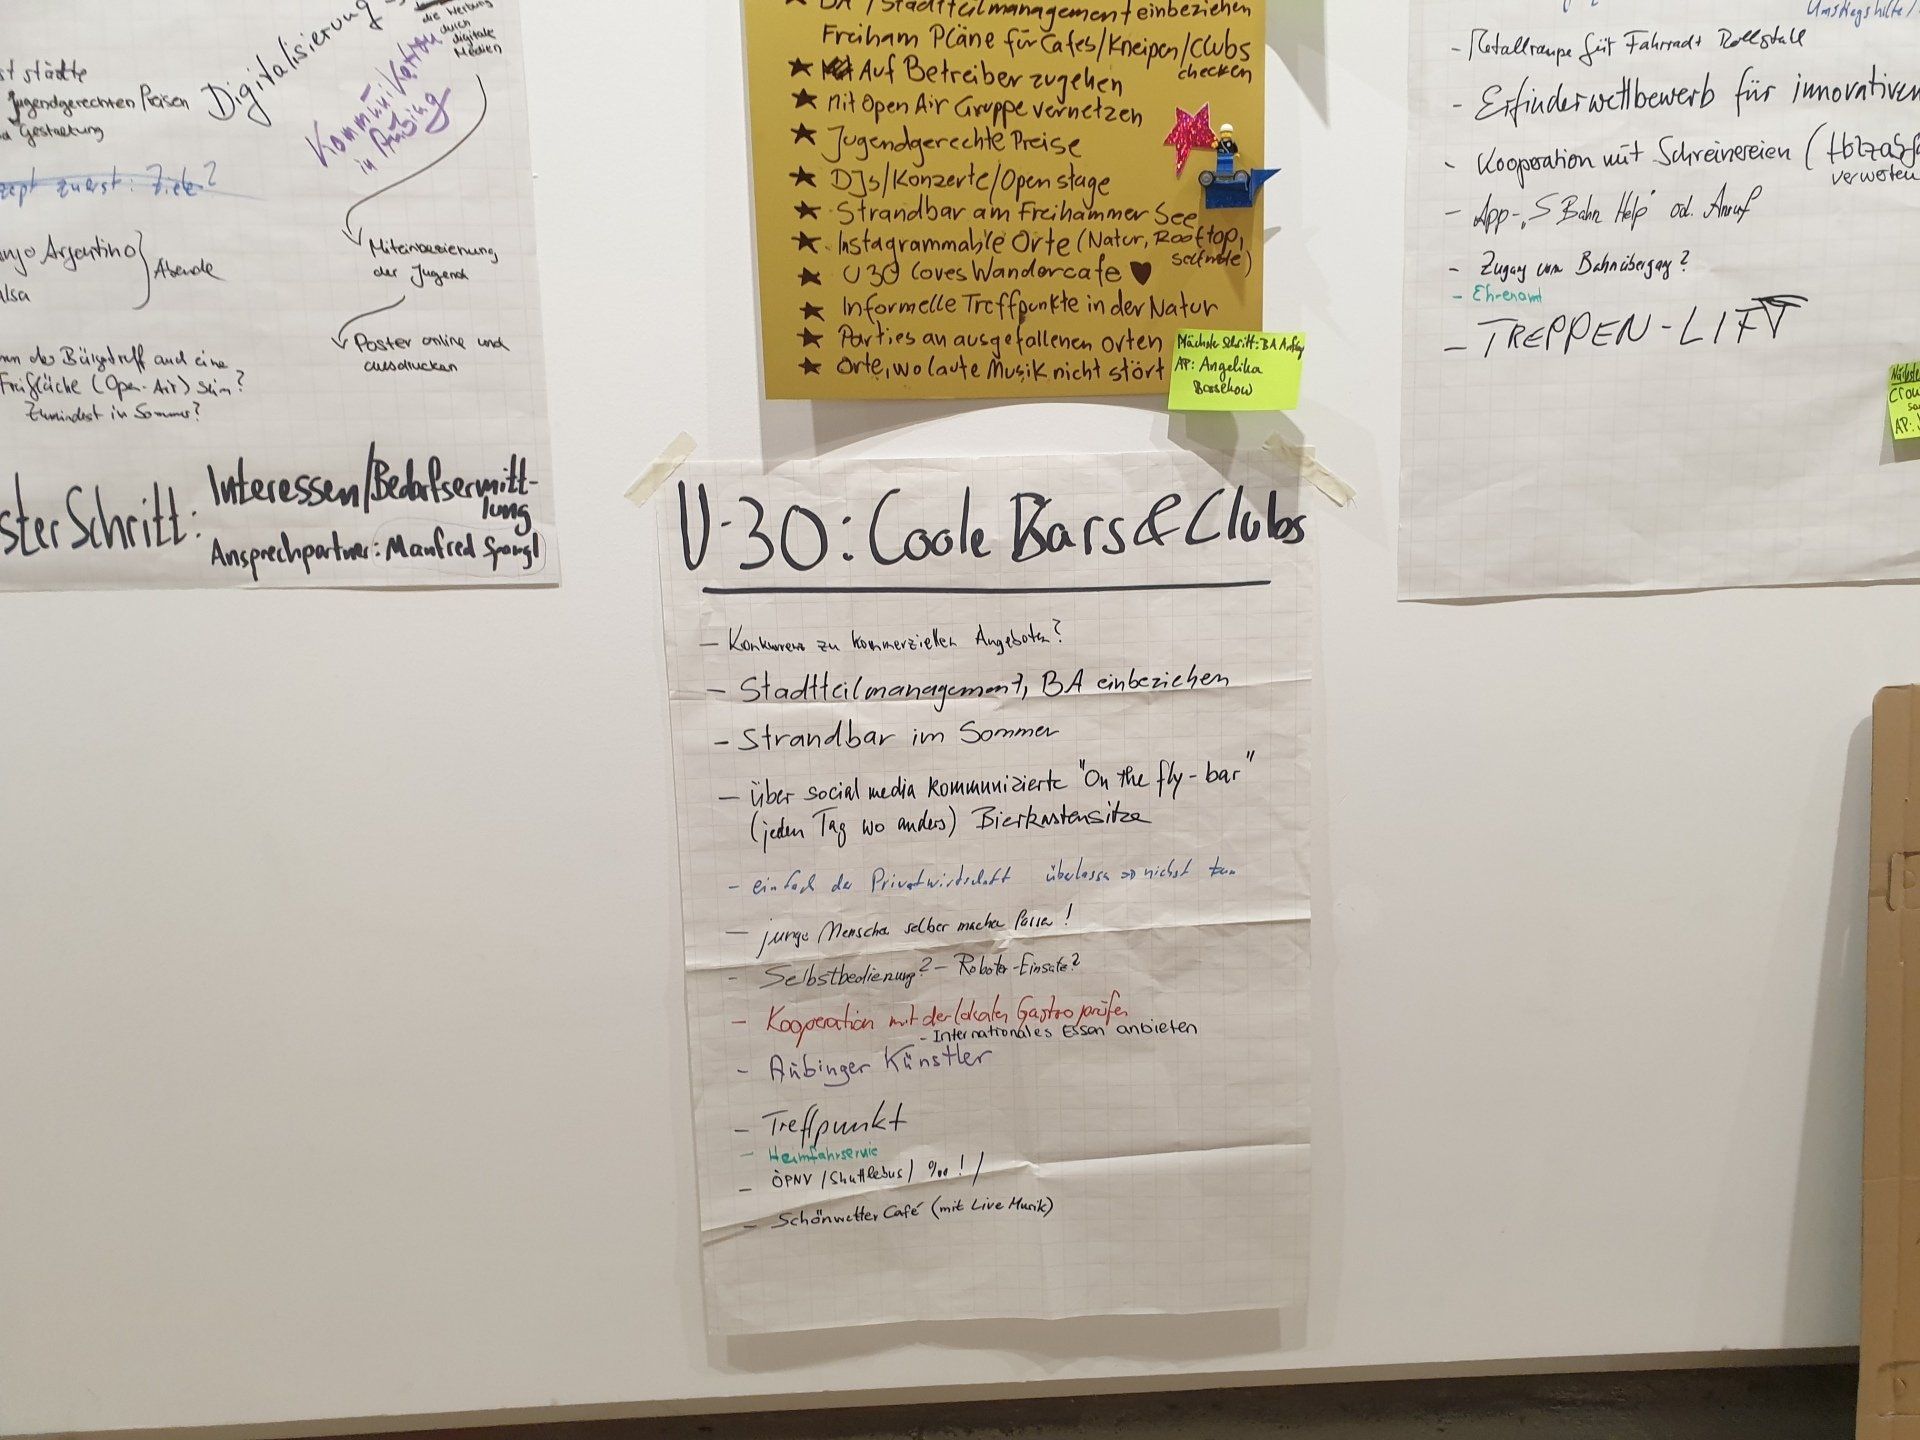 die Werbung
durch
digitale
Medien
Digitalisierung
städte
Jugendgerechten Preisen
Gestaltung
Kommunikation
in Aubing
zuerst: Ziele?
Argentino
Abende
Miteinbeziehung
der Jugend
Poster online und
ausdrucken
und eine
Freifläche (Open-Air) sein?
Zumindest im Sommer?
Schritt: Interessen/Bedarfsermitt-
lung
Ansprechpartner: Manfred Spangl
BA / Stadtteilmanagement einbeziehen
Freiham Pläne für Cafes/Kneipen/Clubs
checken
★ Auf Betreiber zugehen
★ Mit Open Air Gruppe vernetzen
★ Jugendgerechte Preise
★ DJs/Konzerte/Open stage
★ Strandbar am Freihammer See
★ Instagrammable Orte (Natur, Rooftop,
★ U30 loves Wandercafe ♥
★ Informelle Treffpunkte in der Natur
★ Parties an ausgefallenen Orten
★ Orte, wo laute Musik nicht stört
Nächster Schritt: BA
AP: Angelika
U-30: Coole Bars & Clubs
- Konkurrenz zu kommerziellen Angeboten?
- Stadtteilmanagement, BA einbeziehen
- Strandbar im Sommer
- über social media kommunizierte "On the fly-bar"
(jeden Tag wo anders) Bierkastensitze
- einfach der Privatwirtschaft überlassen
- junge Menschen selber machen lassen!
- Selbstbedienung? - Roboter-Einsatz?
- Kooperation mit der lokalen Gastro prüfen
- Internationales Essen anbieten
- Aubinger Künstler
- Treffpunkt
- Heimfahrservice
- ÖPNV /Shuttlebus/ ‰! /
- Schönwetter Café (mit Live Musik)
Umstiegshilfe/
- Metallrampe für Fahrrad + Rollstuhl
- Erfinderwettbewerb für innovativen
- Kooperation mit Schreinereien (
verwerten
- App-"S Bahn Help" od. Anruf
- Zugang vom Bahnübergang?
- Ehrenamt
- TREPPEN-LIFT
AP: